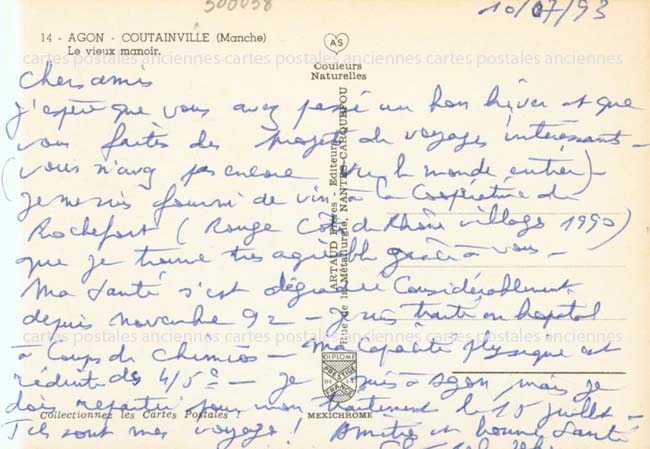 300038
10/07/93
14 - AGON - COUTAINVILLE (Manche)
Le vieux manoir.
AS
Couleurs
Naturelles
cartes postales anciennes cartes postales anciennes cartes postales anciennes
Chers amis
j'espère que vous avez passé un bon hiver et que
vous faites des projets de voyages intéressants -
(vous n'avez pas encore vu le monde entier) -
Je me suis fourni de vin à la Coopérative de
Rochefort (Rouge Côte du Rhône village 1990)
que je trouve très agréable grâce à vous -
Ma santé s'est dégradée Considérablement
depuis novembre 92 - Je suis traité en hopital
à Coups de Chimios - Ma Capacité physique est
réduite des 4/5e - Je suis à Agon, mais je
dois repartir pour mon traitement le 15 juillet -
Tels sont mes voyages ! Amitiés et bonne santé
ARTAUD Frères - Editeurs
Rue de la Métallurgie, NANTES-CARQUEFOU
cartes postales anciennes cartes postales anciennes cartes postales anciennes
DIPLOME
PRESTIGE
DE LA
FRANCE
MEXICHROME
Collectionnez les Cartes Postales !